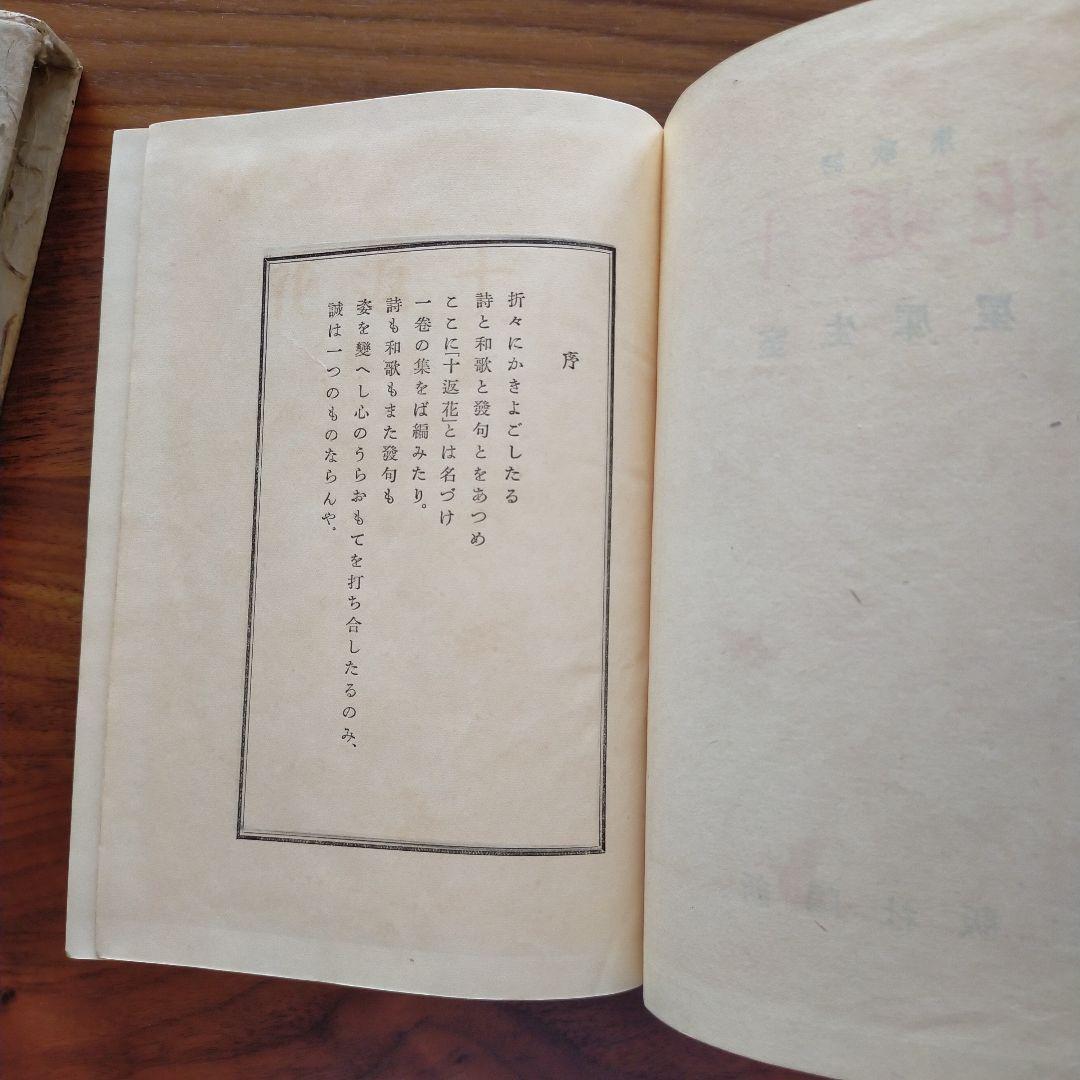 序
折々にかきよごしたる
詩と和歌と發句とをあつめ
ここに「十返花」とは名づけ
一卷の集をば編みたり。
詩も和歌もまた發句も
姿を變へし心のうらおもてを打ち合したるのみ、
誠は一つのものならんや。